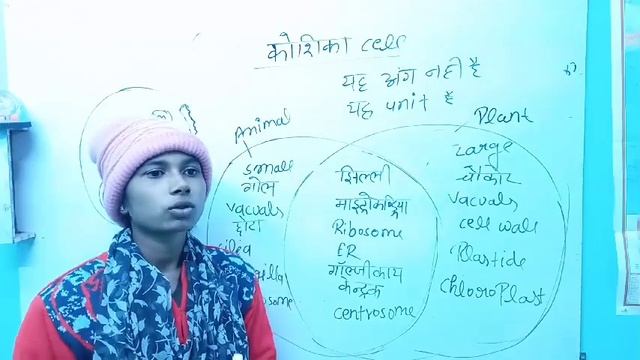 कोशिका cell
यह अंग नहीं है
यह unit है
Animal
Plant
smale
गोल
vacuals
छोटा
cilea
झिल्ली
माइट्रोकण्ड्रिया
Ribosome
ER
गॉल्जीकाय
केन्द्रक
centrosome
Large
चौकोर
vacuals
cell wall
Plastide
chloroPlast